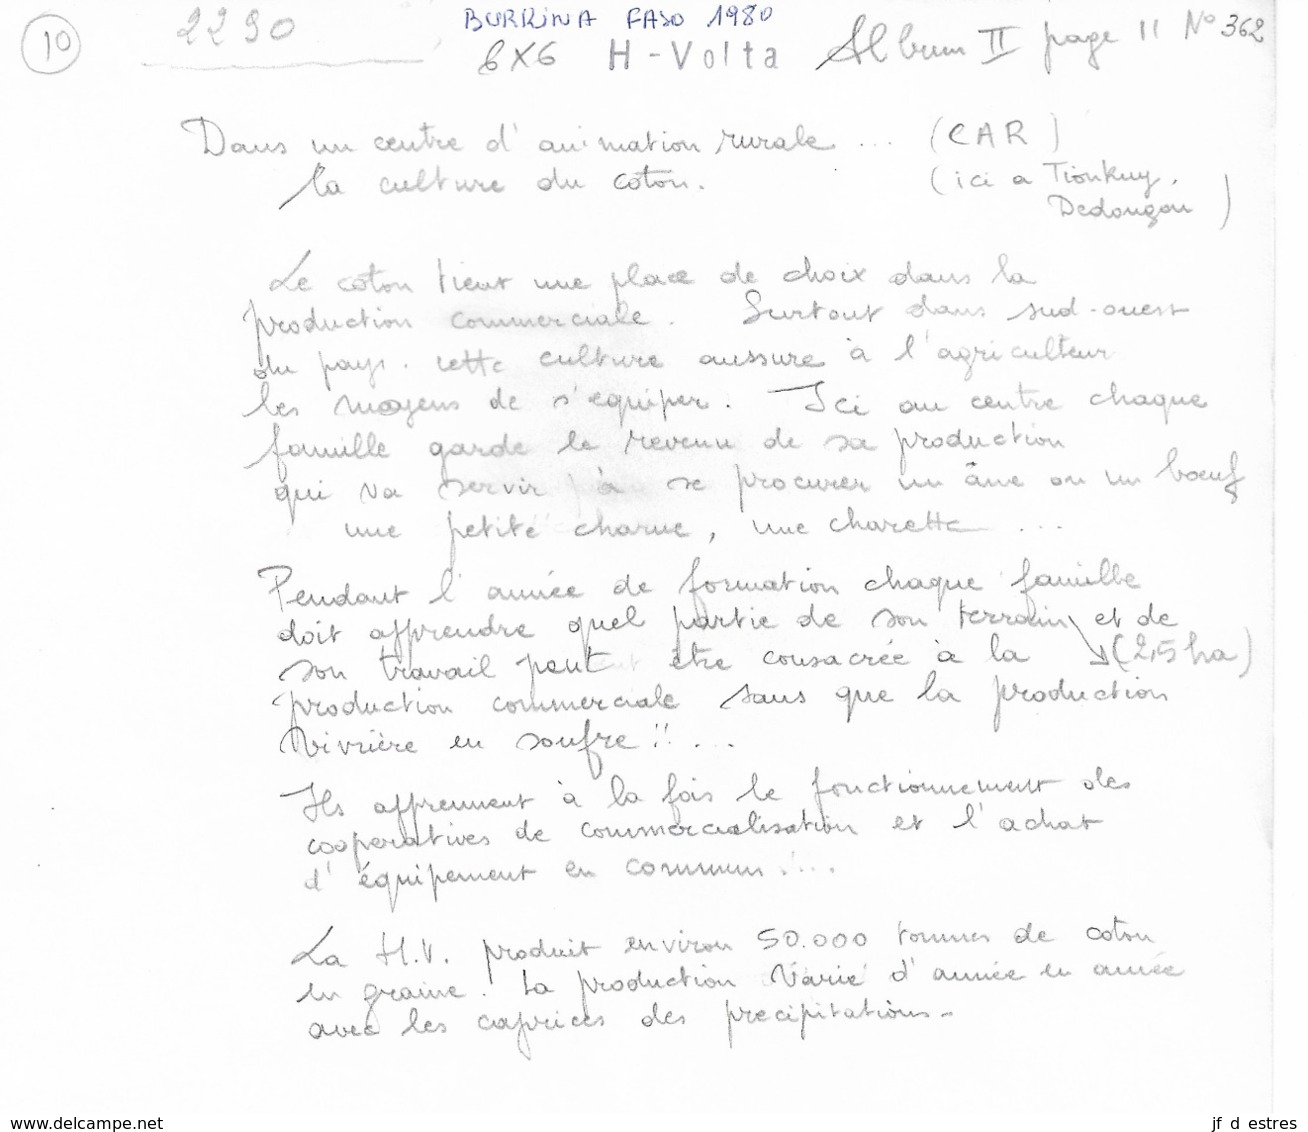 10
2290
BURKINA FASO 1980
6X6 H-Volta Album II page 11 N° 362
Dans un centre d'animation rurale ... (CAR)
la culture du coton. (ici a Tionkuy, Dedougou)
Le coton tient une place de choix dans la
production commerciale. Surtout dans sud-ouest
du pays. cette culture aussure à l'agriculteur
les moyens de s'équiper. Ici au centre chaque
famille garde le revenu de sa production
qui va servir à se procurer un âne ou un boeuf
une petite charue, une charette ...
Pendant l'année de formation chaque famille
doit apprendre quel partie de son terrain et de
son travail peut être consacrée à la (2,5 ha)
production commerciale sans que la production
vivrière en soufre !! ...
Ils apprennent à la fois le fonctionnement des
cooperatives de commercialisation et l'achat
d'équipement en commun ! ...
La H.V. produit environ 50.000 tonnes de coton
en graine. La production varie d'année en année
avec les caprices des precipitations -
www.delcampe.net
jf d estres